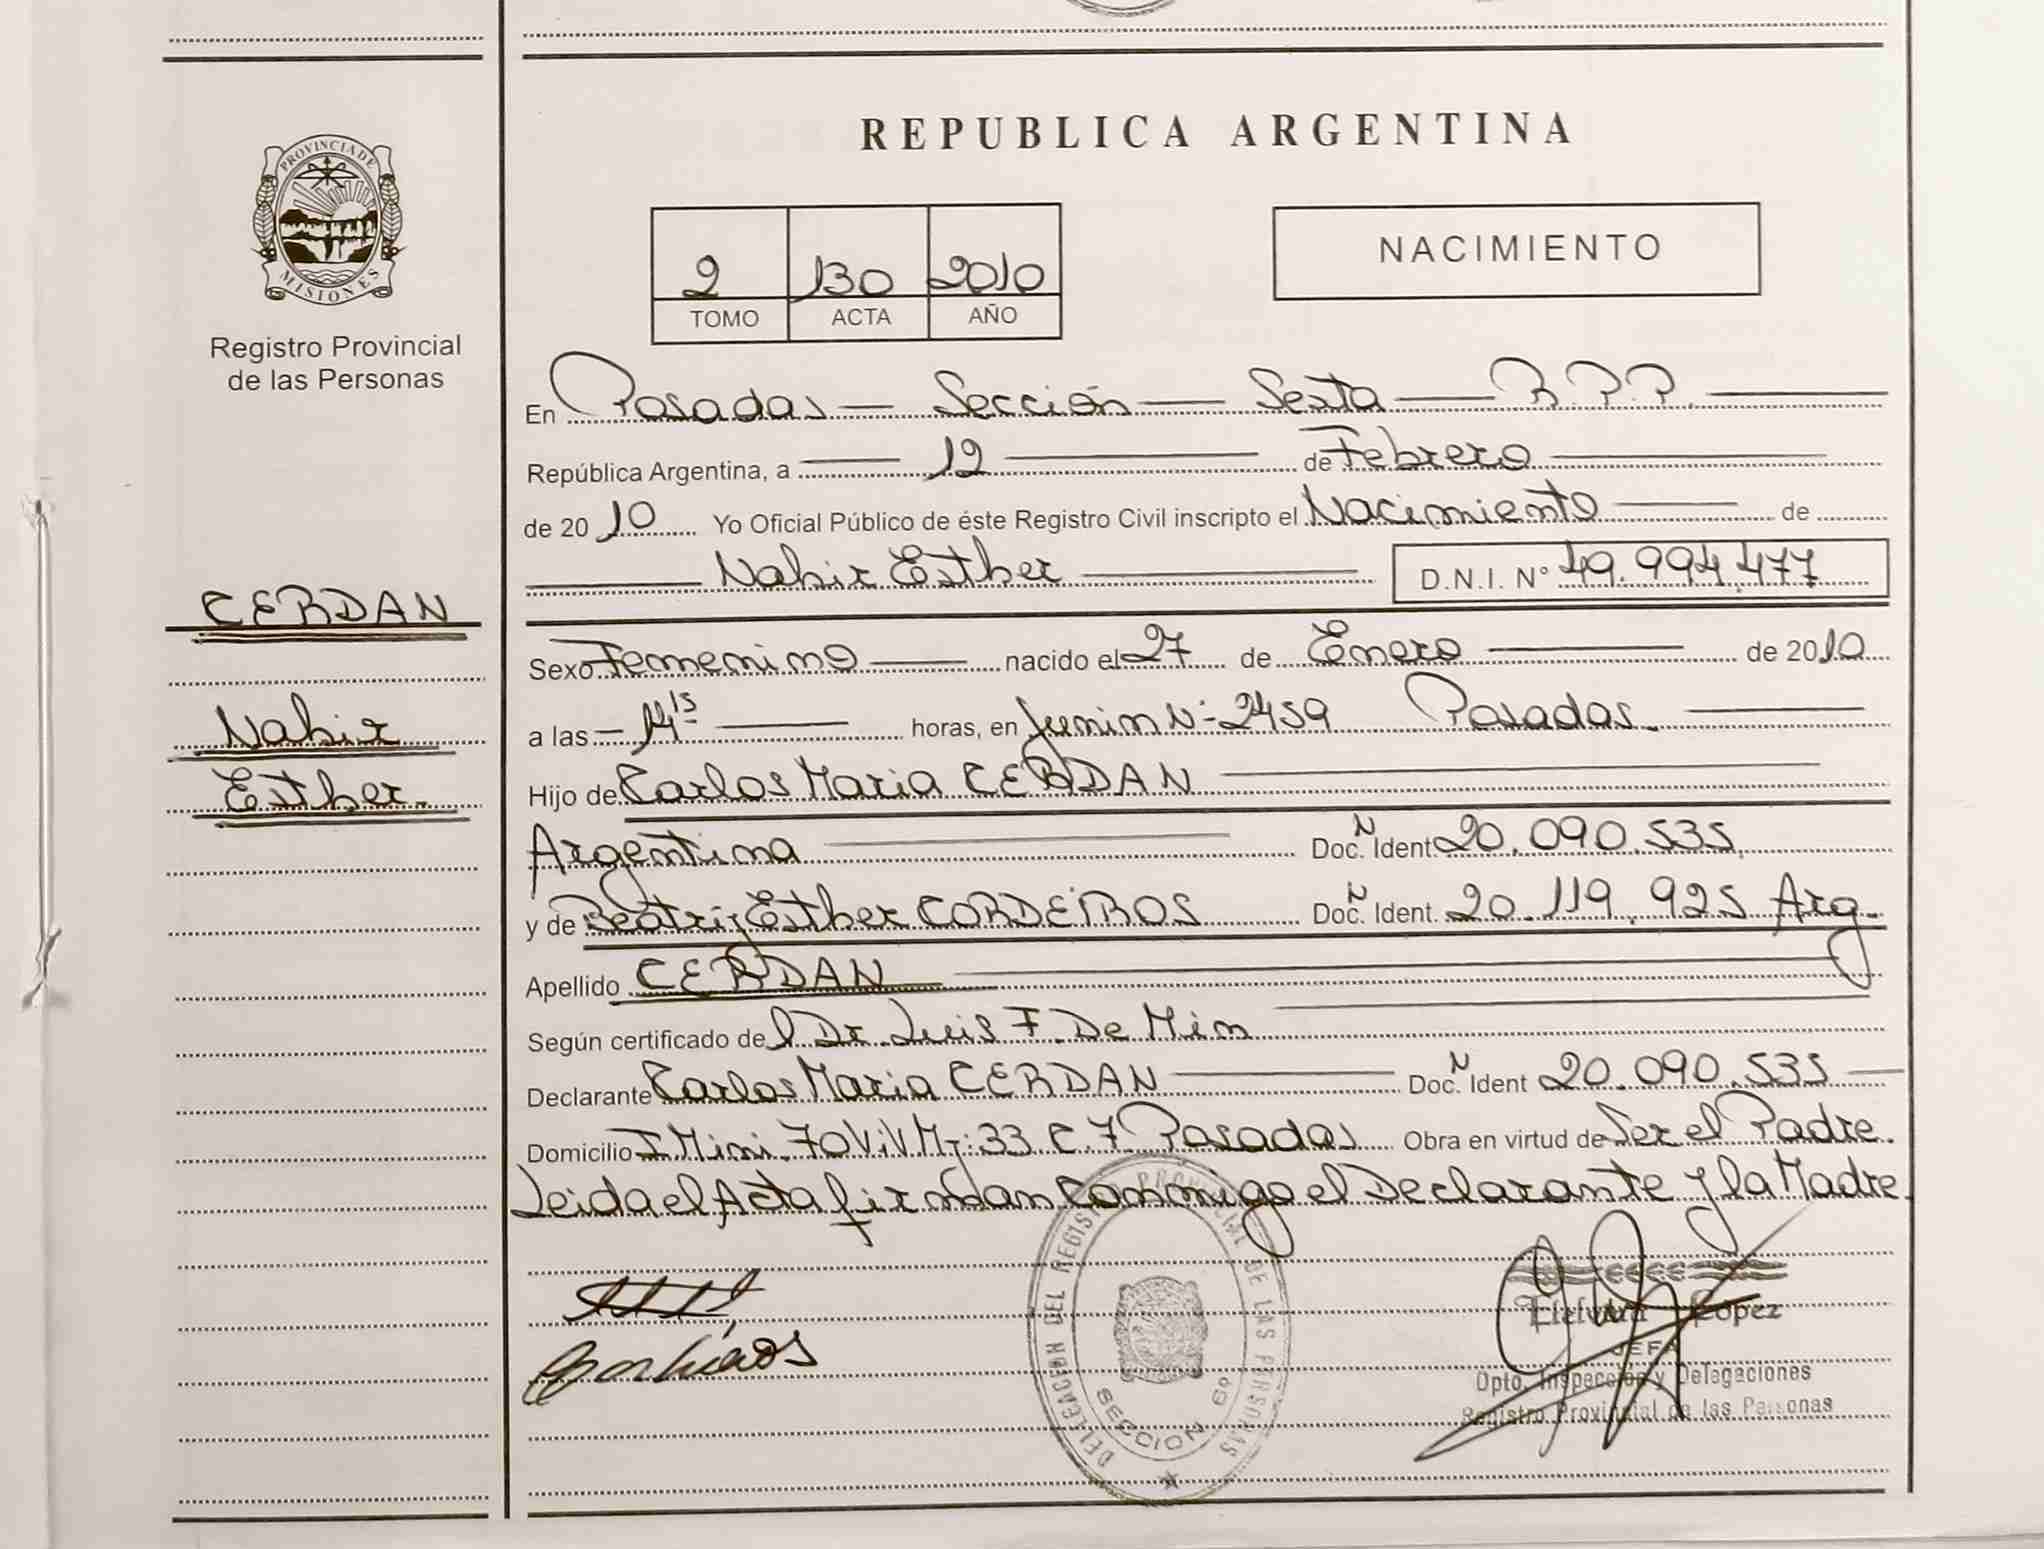 REPUBLICA ARGENTINA
PROVINCIA DE
MISIONES
Registro Provincial
de las Personas
2 130 2010
TOMO ACTA AÑO
NACIMIENTO
En Posadas — Sección — Sexta — R.P.P. —
República Argentina, a — 12 — de Febrero —
de 2010 Yo Oficial Público de éste Registro Civil inscripto el Nacimiento — de
— Nahir Esther — D.N.I. N° 49.994.477
CERDAN
Nahir
Esther.
Sexo Femenino — nacido el 27 de Enero — de 2010
a las — 14 15 — horas, en Junin N- 2459 Posadas. —
Hijo de Carlos Maria CERDAN —
Argentina — Doc. N Ident 20.090.535
y de Beatriz Esther CORDEIROS Doc. N Ident. 20.119.925 Arg.
Apellido CERDAN —
Según certificado del Dr. Luis F. De Mim
Declarante Carlos Maria CERDAN — Doc. N Ident 20.090.535 —
Domicilio I Mini. 70 ViV Mz: 33 C. 7 Posadas Obra en virtud de Ser el Padre.
Leida el Acta firman Conmigo el Declarante y la Madre.
DELEGACION DEL REGISTRO PROVINCIAL DE LAS PERSONAS
SECCION 6º
López
JEFA
Dpto. Inspección y Delegaciones
Registro Provincial de las Personas